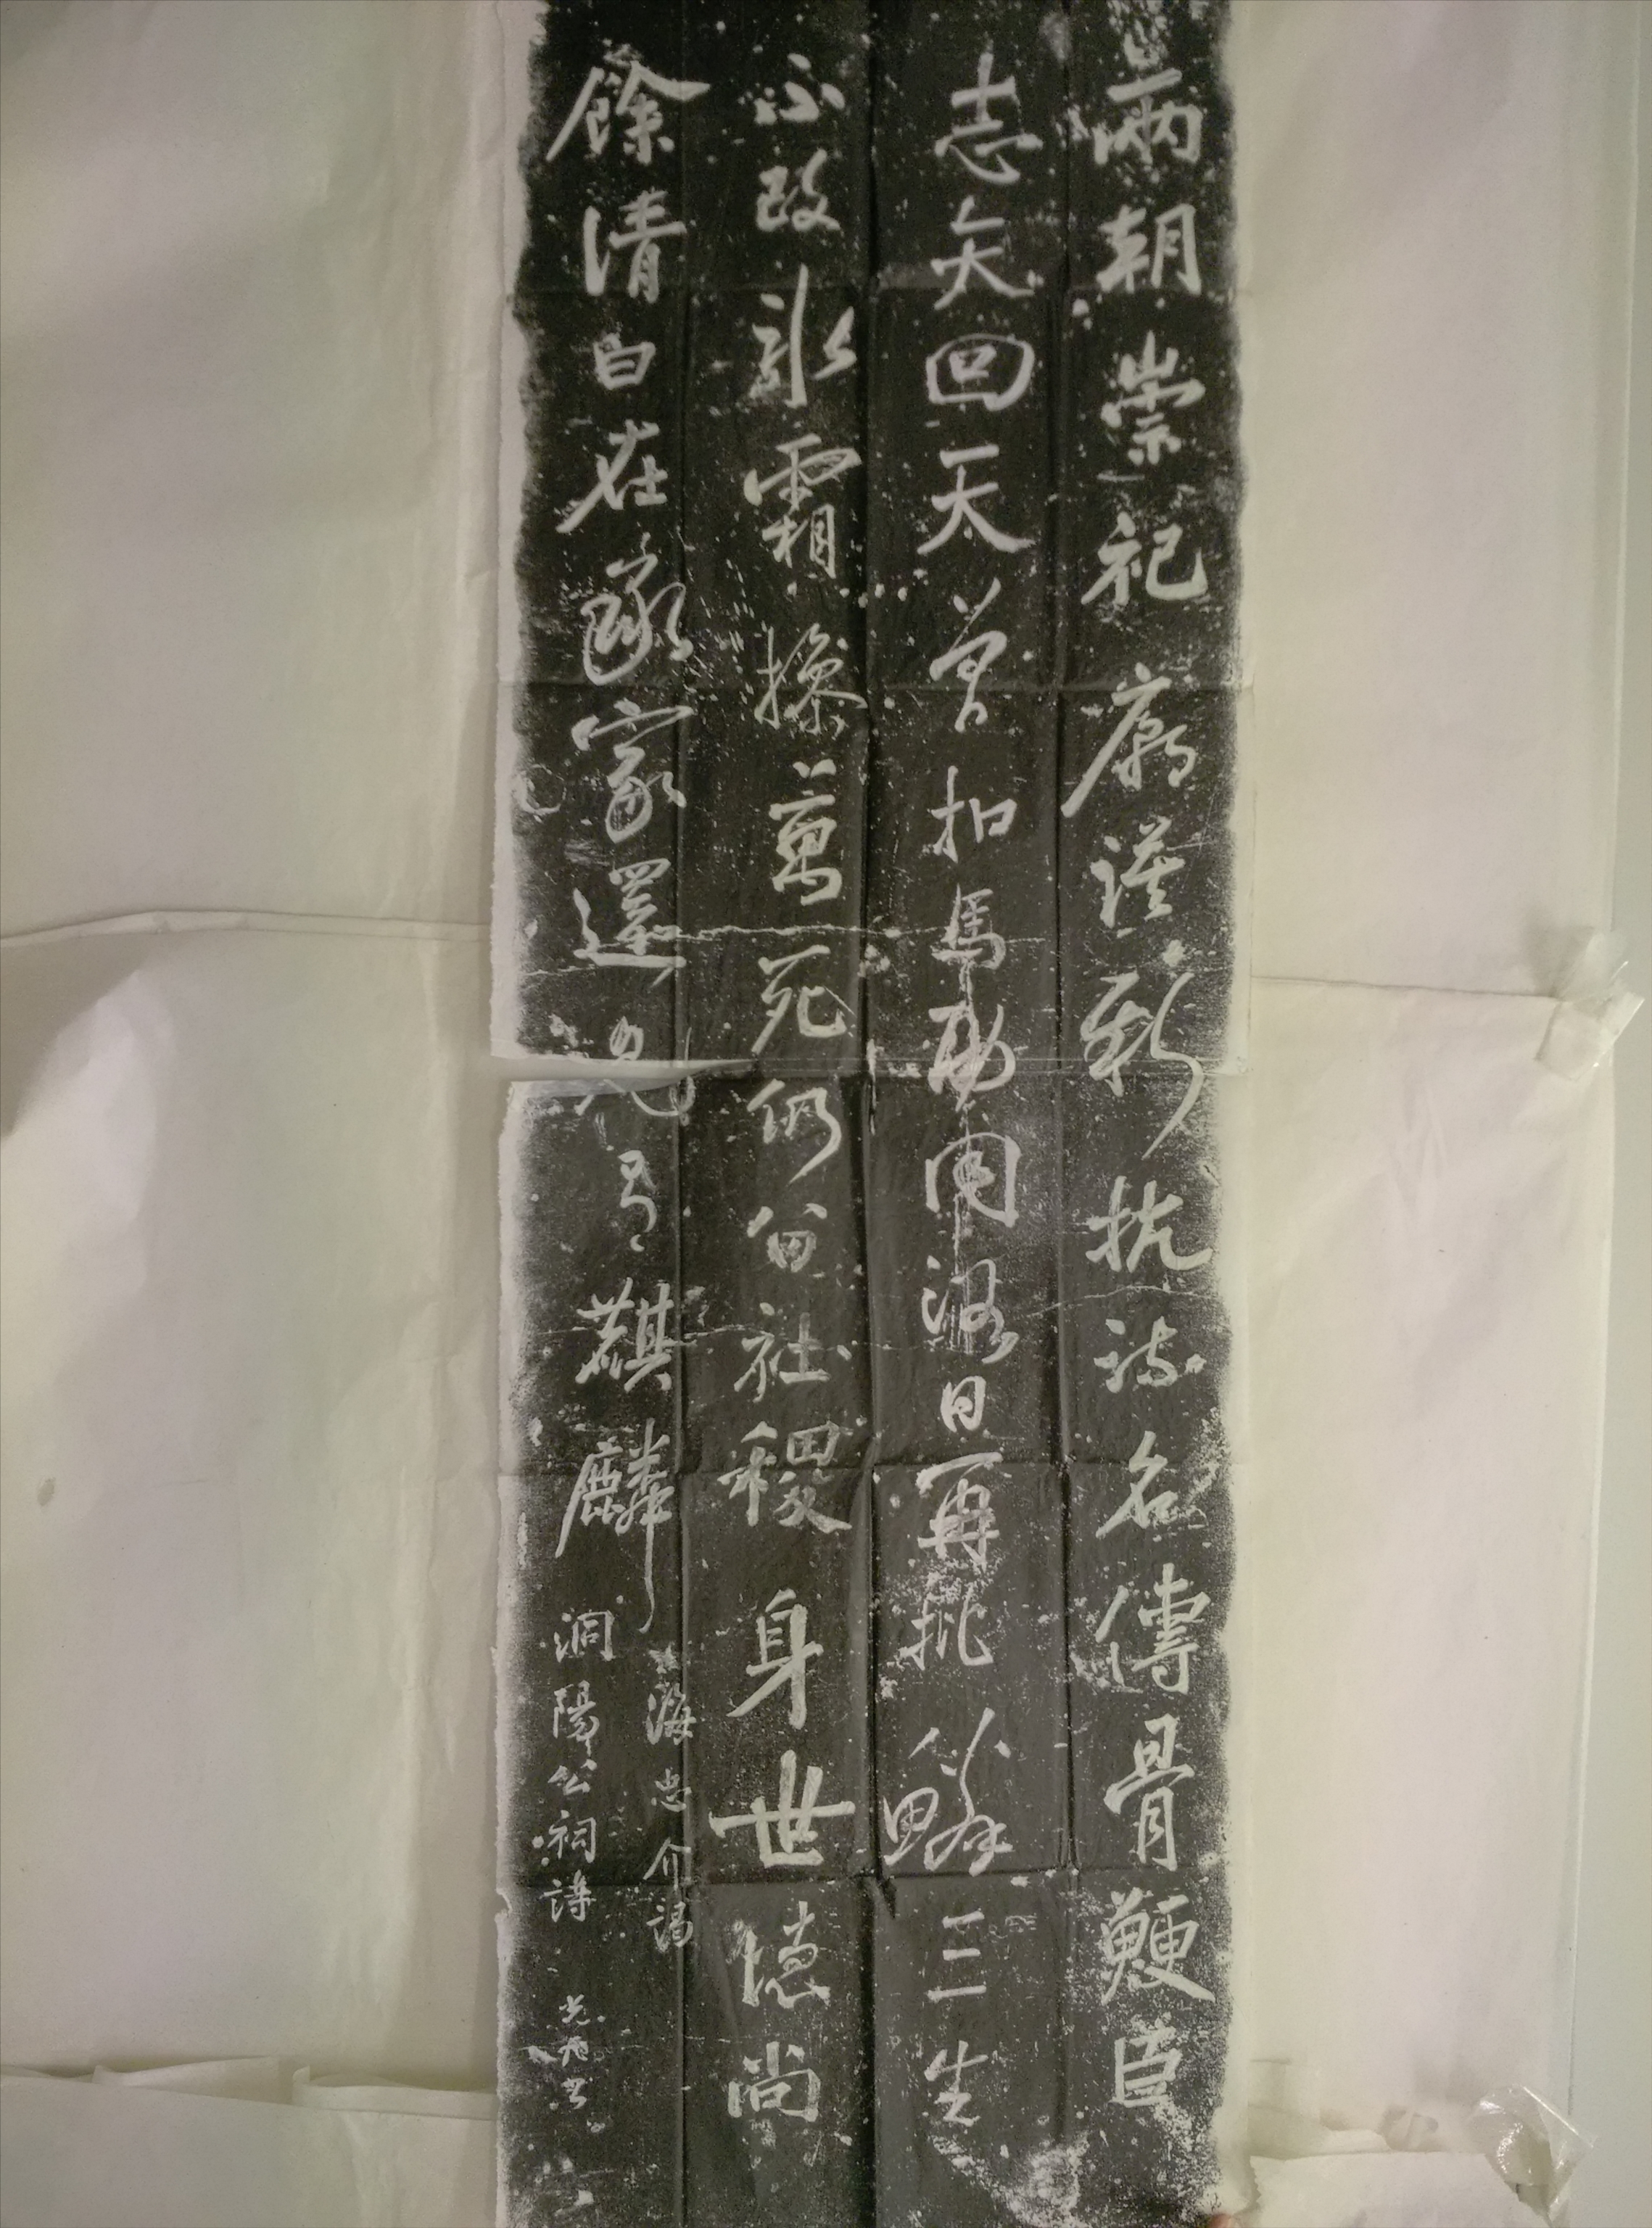 兩朝崇祀廟謨新抗疏名傳骨鯁臣
志矢回天曾扣馬勛同浴日再批鱗三生
不改冰霜操萬死仍留社稷身世德尚
餘清白在承家還見有麒麟
海忠介謁
洞陽公祠詩 光旭書